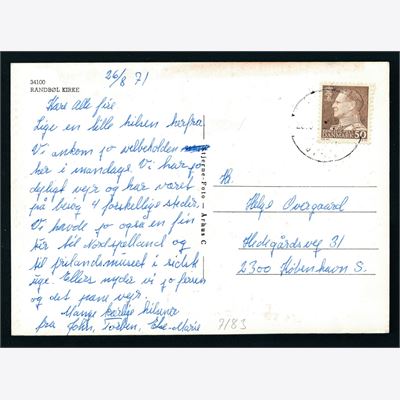 26/8 71
34100
RANDBØL KIRKE
Kære Alle fire
Lige en lille hilsen herfra
Vi ankom jo velbeholden
her i mandags. Vi har jo
dejligt vejr og har været
på besøg 4 forskellige steder.
Vi havde jo også en fin
tur til Nordsjælland og
til frilandsmuseet i sidste
uge. Ellers nyder vi jo ferien
og det pæne vejr.
Mange kærlige hilsner
fra John, Torben, Else-Marie
Stjerne-Foto - Århus C
50
Hr.
Helge Overgaard
Hedegårdsvej 31
2300 København S.
7183